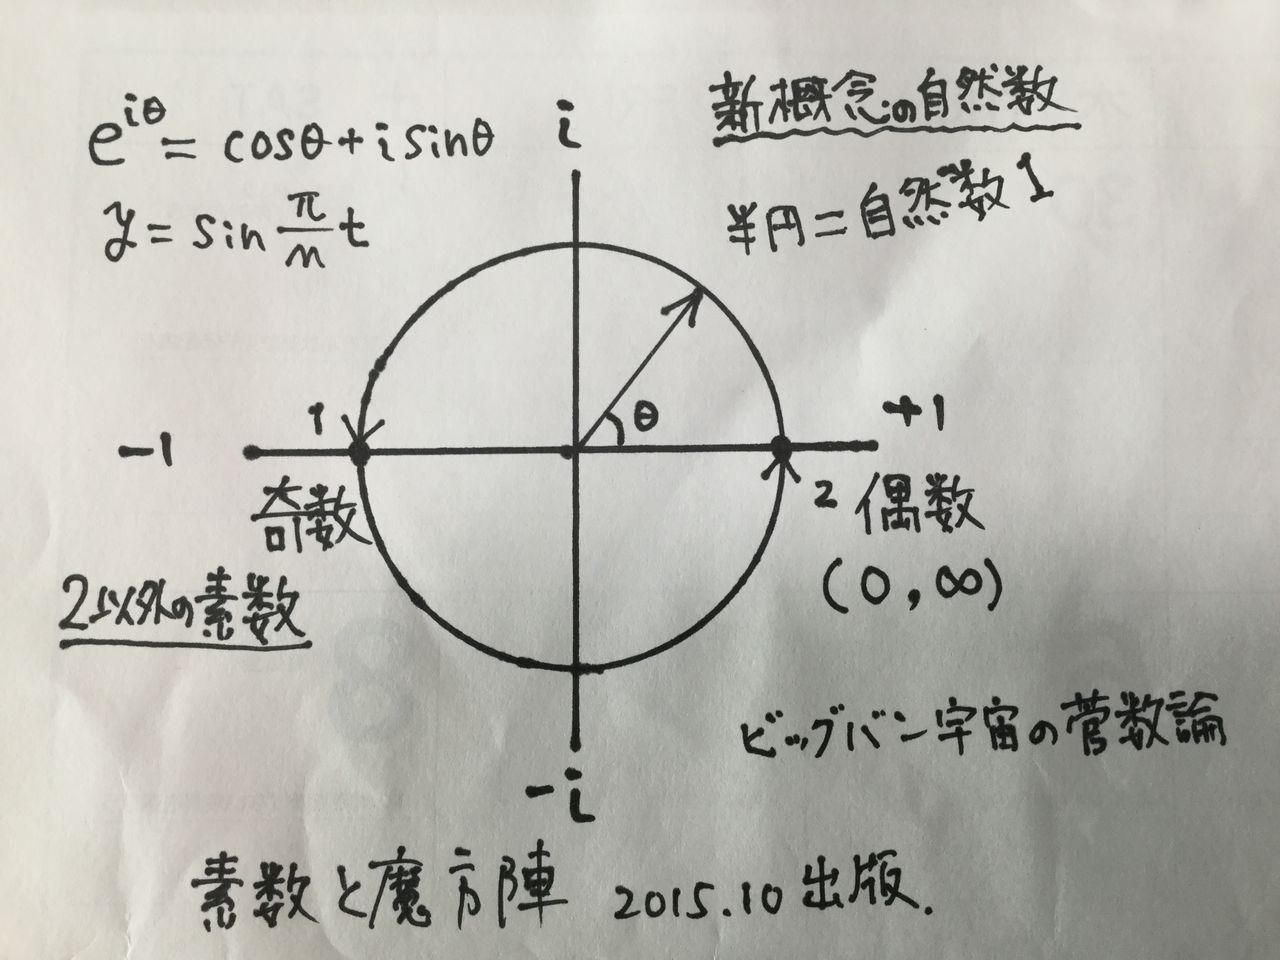 e^{iθ} = cosθ + i sinθ
y = sin π/n t
新概念の自然数
半円=自然数1
i
θ
1
-1
+1
奇数
2 偶数
(0, ∞)
2以外の素数
-i
ビッグバン宇宙の菅数論
素数と魔方陣 2015.10 出版.